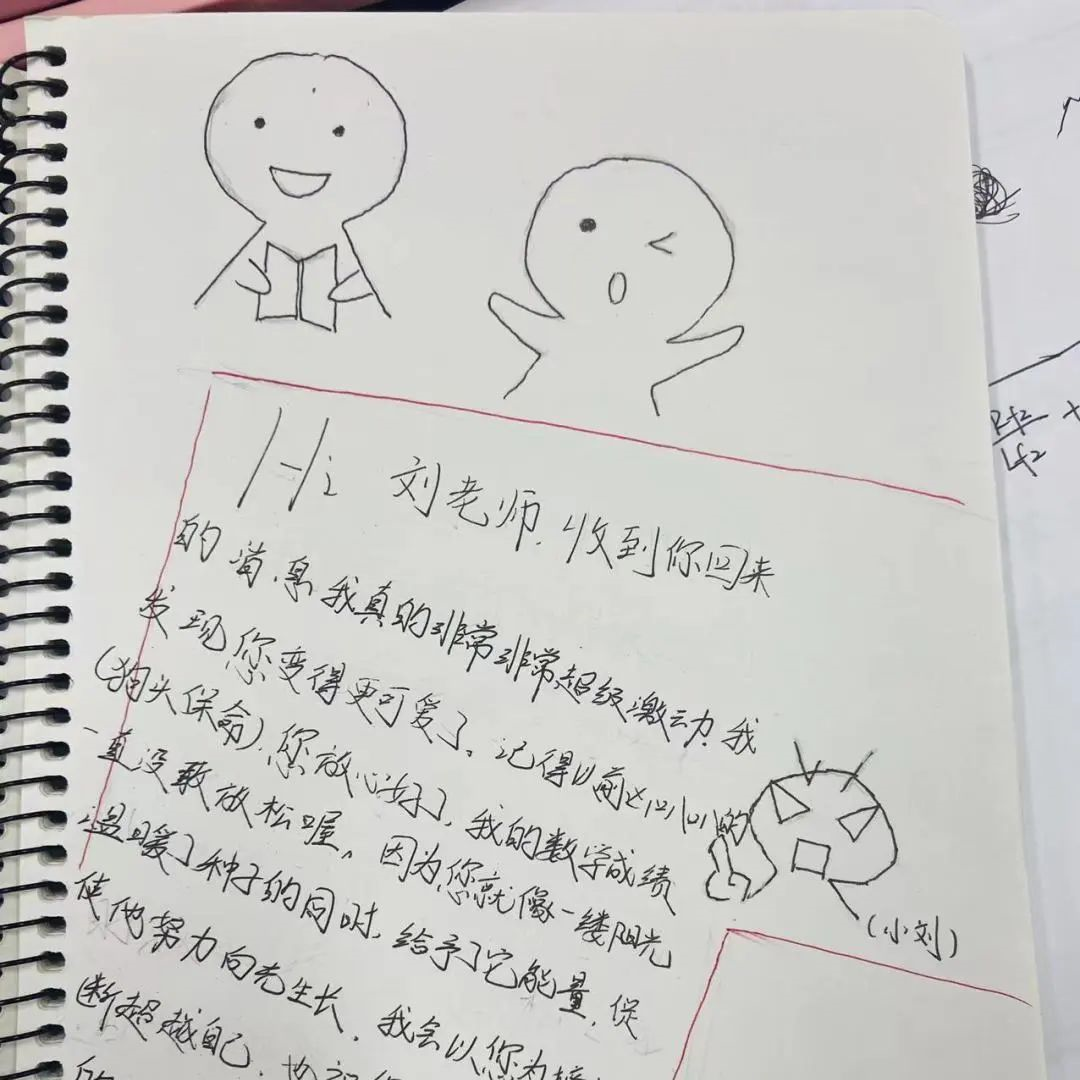 Hi 刘老师,收到你回来
的消息我真的非常非常超级激动.我
发现您变得更可爱了。记得以前凶凶的
(狗头保命).您放心好了,我的数学成绩
一直没敢放松喔,因为您就像一缕阳光
温暖了种子的同时,给予了它能量,促
使他努力向光生长.我会以您为榜
断超越自己.
的
(小刘)